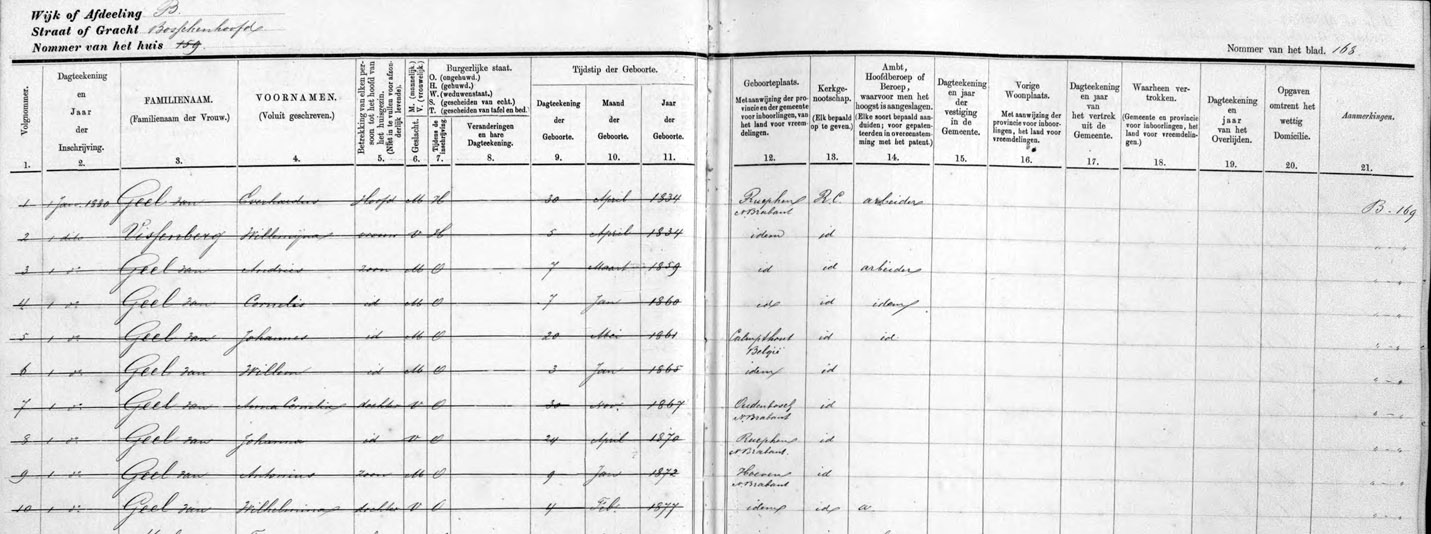 Wijk of Afdeeling B
Straat of Gracht Bosschenhoofd
Nommer van het huis 159
Nommer van het blad. 168
Volgnommer.
1.
Dagteekening
en
Jaar
der
Inschrijving.
2.
FAMILIENAAM.
(Familienaam der Vrouw.)
3.
VOORNAMEN.
(Voluit geschreven.)
4.
Betrekking van elken per-
soon tot het hoofd van
het huisgezin.
(Niet in te vullen voor afzon-
derlijk levende).
5.
Geslacht. M. (mannelijk) V. (vrouwelijk)
6.
Burgerlijke staat.
O. (ongehuwd.)
H. (gehuwd.)
W. (weduwenstaat.)
S. (gescheiden van echt.)
T. (gescheiden van tafel en bed.)
Tijdens de inschrijving
7.
Veranderingen
en hare
Dagteekening.
8.
Tijdstip der Geboorte.
Dagteekening
der
Geboorte.
9.
Maand
der
Geboorte.
10.
Jaar
der
Geboorte.
11.
Geboorteplaats.
Met aanwijzing der pro-
vincie en der gemeente
voor inboorlingen, van
het land voor vreem-
delingen.
12.
Kerkge-
nootschap.
(Elk bepaald
op te geven.)
13.
Ambt,
Hoofdberoep of
Beroep,
waarvoor men het
hoogst is aangeslagen.
(Elke soort bepaald aan-
duiden; voor gepaten-
teerden in overeenstem-
ming met het patent.)
14.
Dagteekening
en jaar
der
vestiging in
de Gemeente.
15.
Vorige
Woonplaats.
Met aanwijzing der
provincie voor inboor-
lingen, het land voor
vreemdelingen.
16.
Dagteekening
en jaar
van het
vertrek
uit de
Gemeente.
17.
Waarheen ver-
trokken.
(Gemeente en provincie
voor inboorlingen, het
land voor vreemdelin-
gen.)
18.
Dagteekening
en
jaar
van het
Overlijden.
19.
Opgaven
omtrent het
wettig
Domicilie.
20.
Aanmerkingen.
21.
1 1 Jan. 1880 Geel van Everhardus Hoofd M H 30 April 1834 Rucphen N Brabant R.C. arbeider B. 169
2 1 dito Vissenberg Willemijna vrouw V H 5 April 1834 idem id
3 1 do Geel van Andries zoon M O 7 Maart 1859 id id arbeider
4 1 do Geel van Cornelis id M O 7 Jan 1860 id id idem
5 1 do Geel van Johannes id M O 20 Mei 1861 Calmpthout België id id
6 1 do Geel van Willem id M O 3 Jan 1865 idem id
7 1 do Geel van Anna Cornelia dochter V O 30 Nov. 1867 Oudenbosch N Brabant id
8 1 do Geel van Johanna id V O 24 April 1870 Rucphen N Brabant. id
9 1 do Geel van Antonius zoon M O 9 Jan 1872 Hoeven N Brabant id
10 1 do Geel van Wilhelmina dochter V O 4 Feb. 1877 idem id a